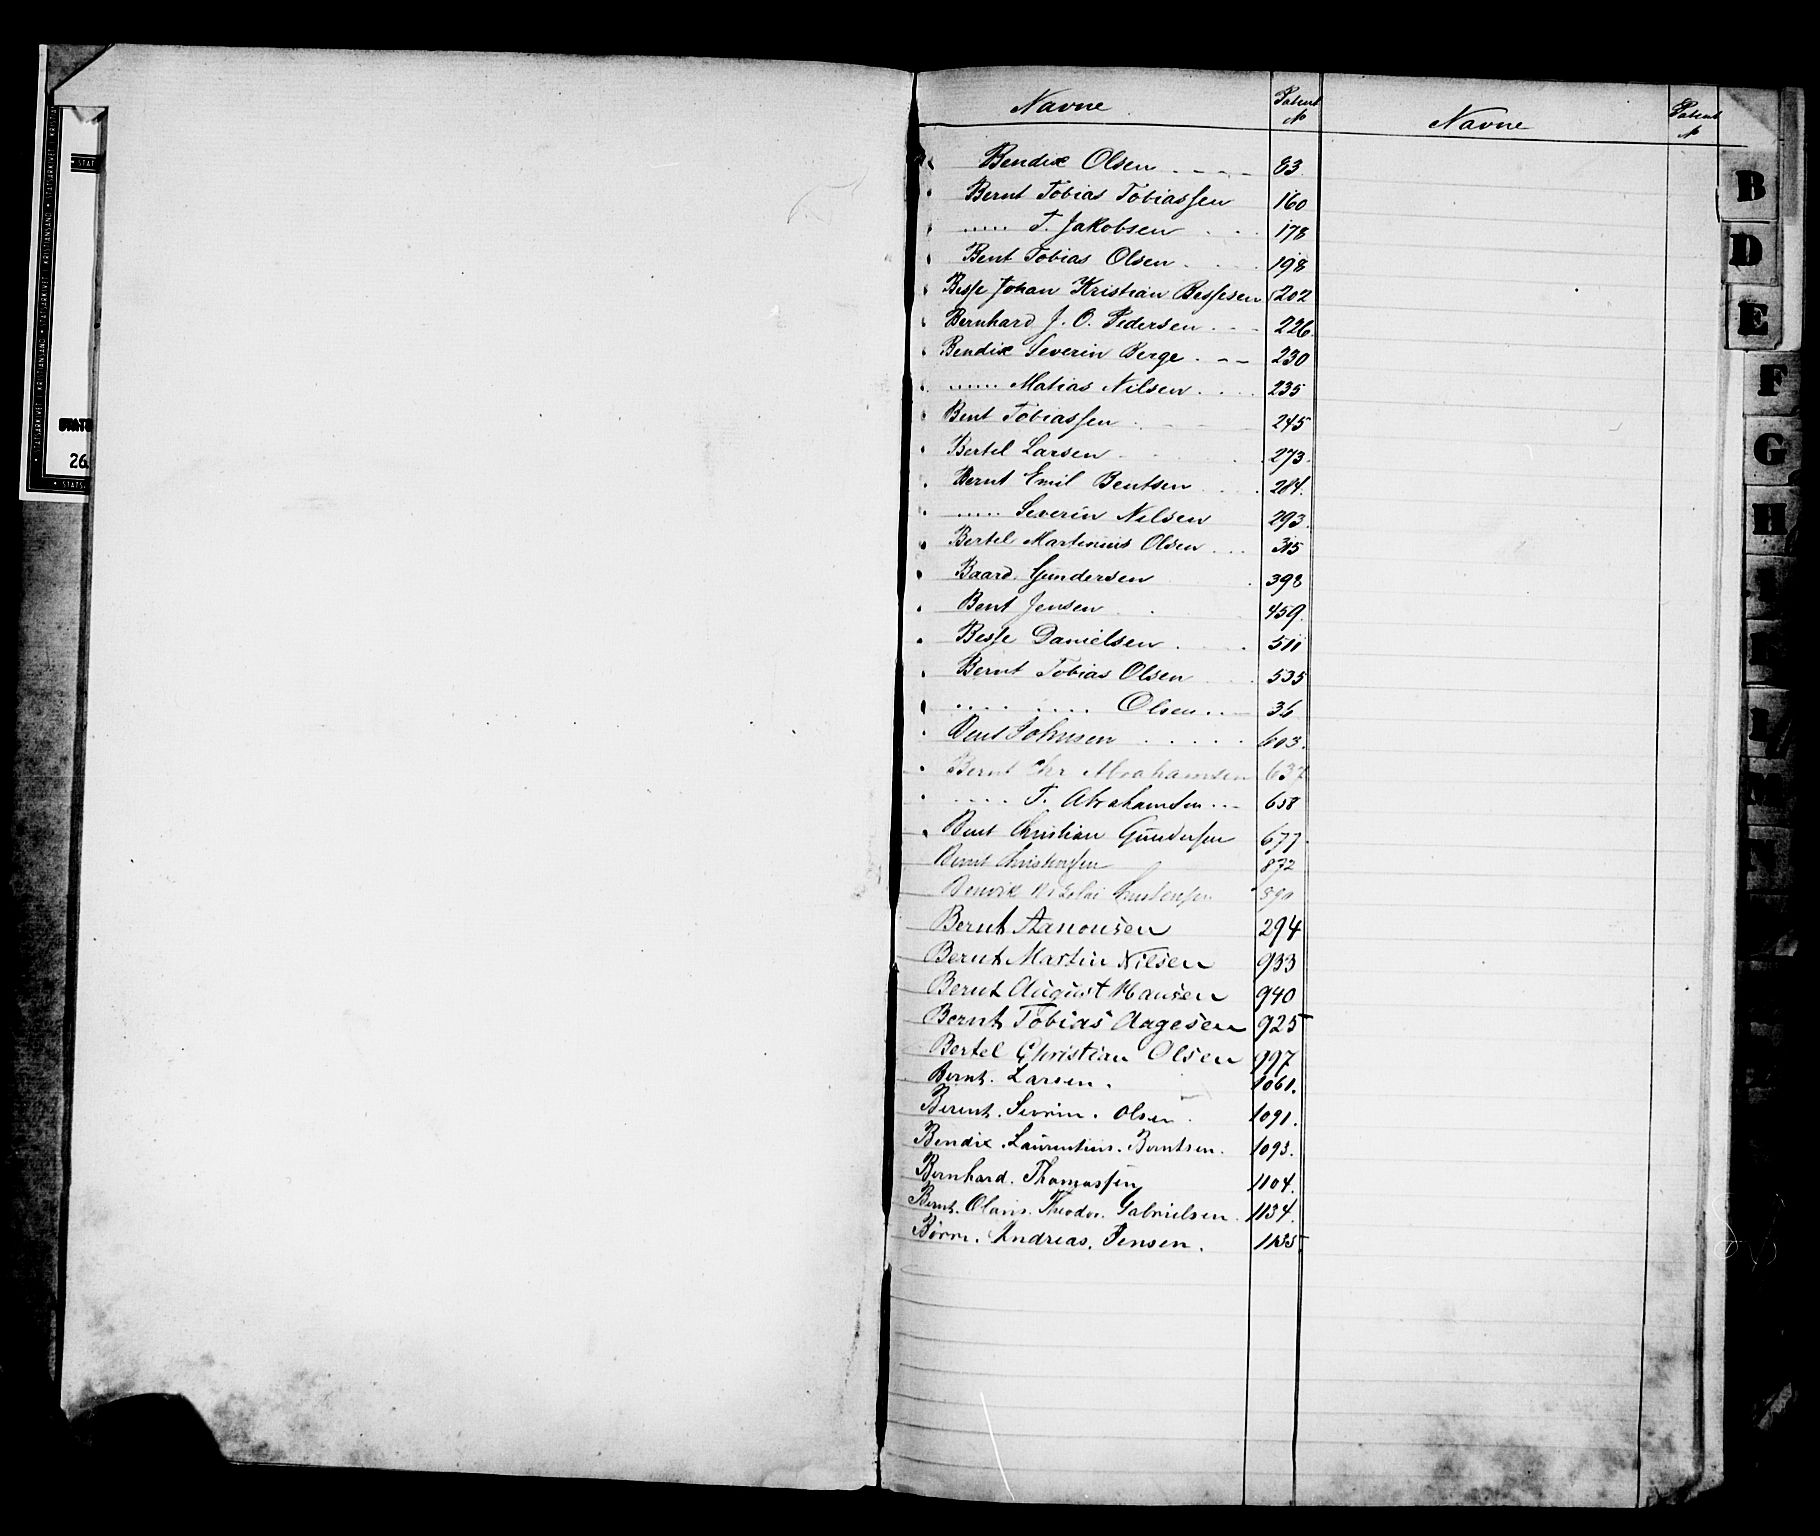 Navne Patent № Navne Patent №
Bendix Olsen 83.
Bernt Tobias Tobiassen 160
..... T. Jakobsen 178
Bent Tobias Olsen 198
Besse Johan Kristian Bessesen 202
Bernhard J. O. Pedersen 226.
Bendix Severin Berge 230
...... Matias Nilsen 235
Bent Tobiassen 245
Bertel Larsen 273.
Bernt Emil Bentsen 284.
..... Severin Nilsen 293.
Bertel Martinius Olsen 315
Baard Gundersen 398
Bent Jensen 459.
Besse Danielsen 511
Bernt Tobias Olsen 535
.... .... Olsen 36
Bent Johnsen 603.
Bernt Chr Abrahamsen 637
.... T. Abrahamsen 658
Bent Christian Gundersen 677.
Bernt 872
Bendix Nikolai
Bernt Aanonsen 294
Bernt Martin Nilsen 933
Bernt August Hansen 940
Bernt Tobias Aagesen 925
Bertel Christian Olsen 997
Bernt. Larsen. 1061.
Berent. Sevrin. Olsen. 1091.
Bendix. Laurentius. Berntsen. 1093.
Bernhard. Thomassen 1104.
Bernt. Olaus. Theodor. Gabrielsen. 1134.
Børre. Andreas. Jensen. 1155
B
D
E
F
G
H
STATSARKIVET I KRISTIANSAND
26.